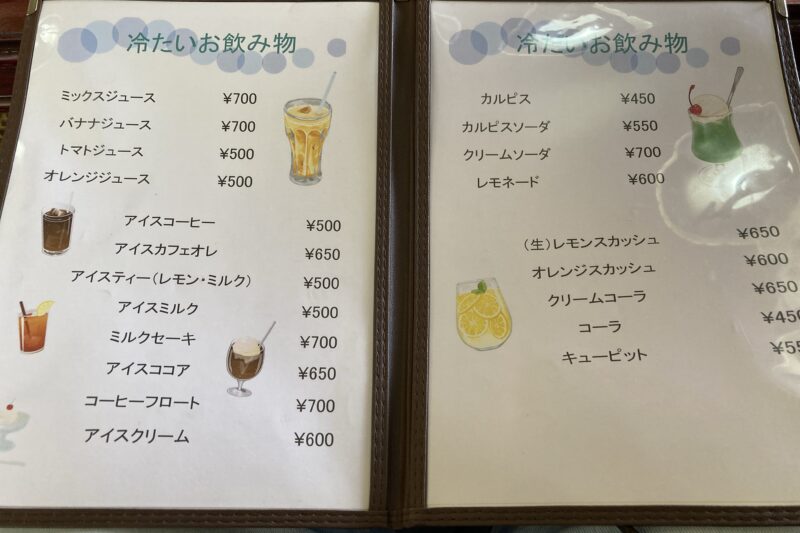 冷たいお飲み物
ミックスジュース ¥700
バナナジュース ¥700
トマトジュース ¥500
オレンジジュース ¥500
アイスコーヒー ¥500
アイスカフェオレ ¥650
アイスティー(レモン・ミルク) ¥500
アイスミルク ¥500
ミルクセーキ ¥700
アイスココア ¥650
コーヒーフロート ¥700
アイスクリーム ¥600
冷たいお飲み物
カルピス ¥450
カルピスソーダ ¥550
クリームソーダ ¥700
レモネード ¥600
(生)レモンスカッシュ ¥650
オレンジスカッシュ ¥600
クリームコーラ ¥650
コーラ ¥450
キューピット ¥55